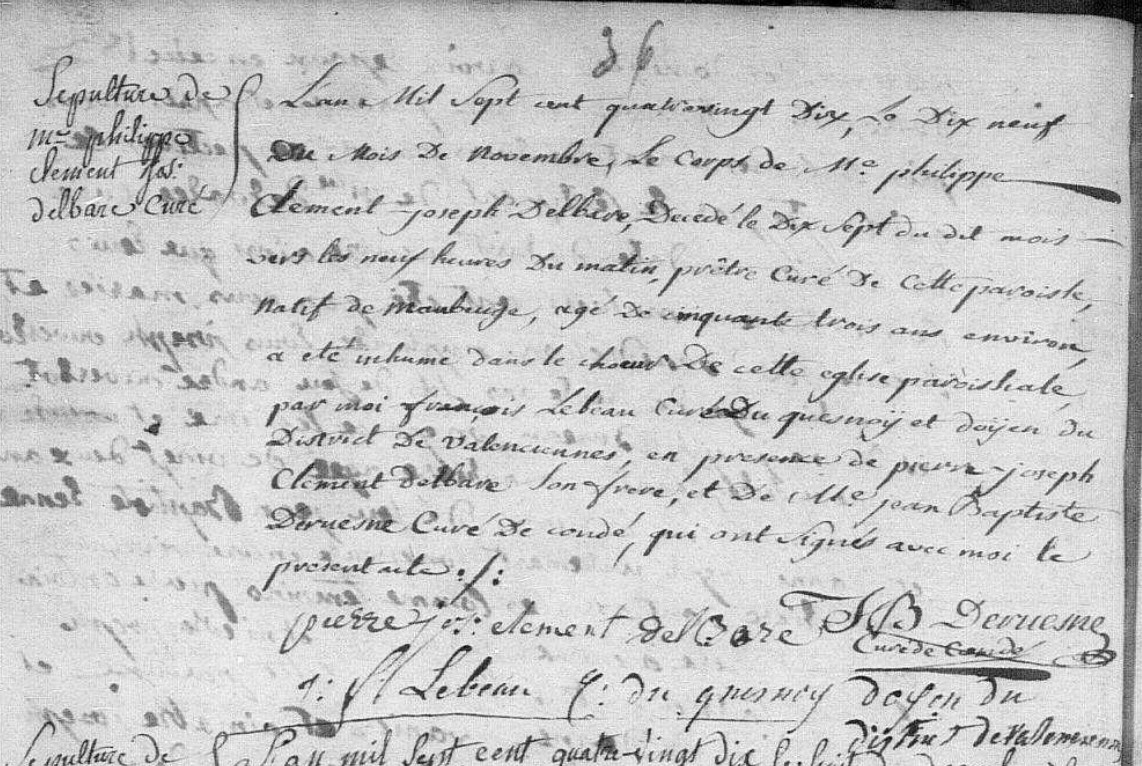 36
Sepulture de
mre philippe
clement jos:
delbare Curé
L'an Mil Sept cent quatrevingt Dix, Le Dix neuf
Du Mois De Novembre, Le Corps de Me philippe
Clement joseph Delbare, Decedé le Dix Sept du dit mois
vers les neuf heures Du matin, prêtre Curé De Cette paroisse,
Natif de Maubeuge, agé De cinquante trois ans environ,
a eté inhumé dans le choeur De cette eglise paroissiale,
par moi françois Lebeau Curé Du quesnoÿ et doÿen du
District De Valenciennes, en presence de pierre joseph
Clement delbare Son frere, et De Me jean Baptiste
Deruesne Curé De condé, qui ont Signés avec moi le
present acte ./:
pierre jos: clement delbare JB Deruesne
Curé de Condé
f: Lebeau C: du quesnoy doyen du
district de Valenciennes
Sepulture de
L'an mil Sept cent quatre-vingt dix le